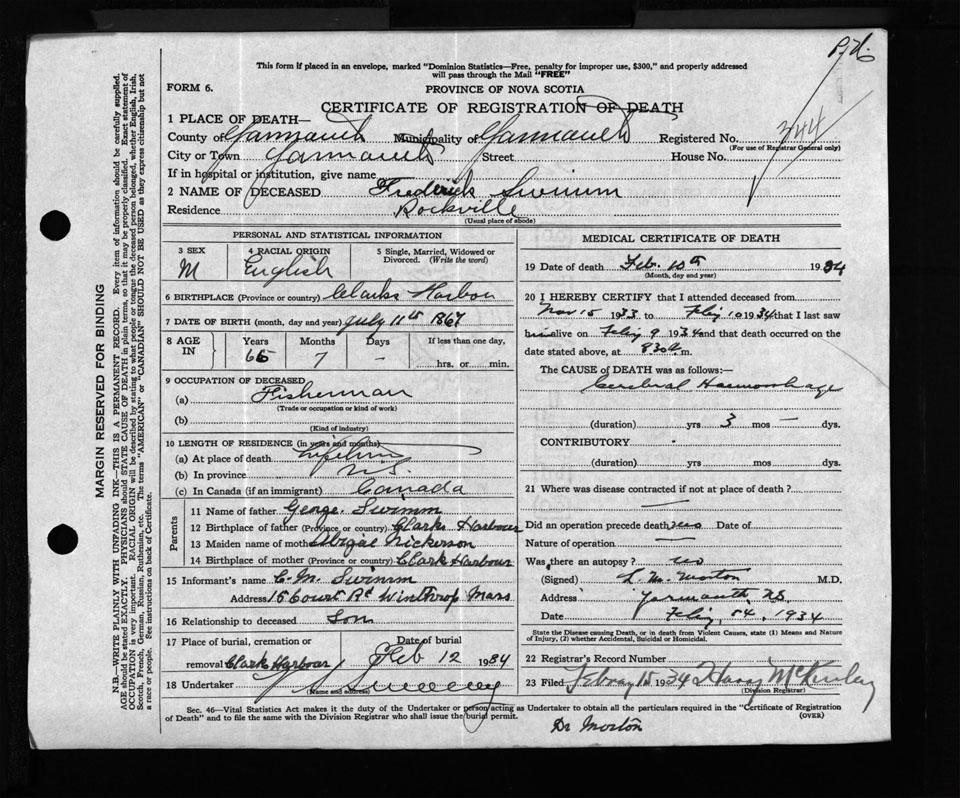 This form if placed in an envelope, marked "Dominion Statistics—Free, penalty for improper use, $300," and properly addressed
will pass through the Mail "FREE"
FORM 6.
PROVINCE OF NOVA SCOTIA
CERTIFICATE OF REGISTRATION OF DEATH
1 PLACE OF DEATH—
County of Yarmouth Municipality of Yarmouth Registered No. 344
(For use of Registrar General only)
City or Town Yarmouth Street House No.
If in hospital or institution, give name
2 NAME OF DECEASED Frederick Swimm
Residence Rockville
(Usual place of abode)
PERSONAL AND STATISTICAL INFORMATION
3 SEX 4 RACIAL ORIGIN 5 Single, Married, Widowed or
Divorced. (Write the word)
M English
6 BIRTHPLACE (Province or country) Clarks Harbou
7 DATE OF BIRTH (month, day and year) July 11th 1867
8 AGE IN Years Months Days If less than one day,
66 7 — hrs. or min.
9 OCCUPATION OF DECEASED
(a) Fisherman
(Trade or occupation or kind of work)
(b)
(Kind of industry)
10 LENGTH OF RESIDENCE (in years and months)
(a) At place of death
(b) In province N.S.
(c) In Canada (if an immigrant) Canada
Parents
11 Name of father George Swimm
12 Birthplace of father (Province or country) Clarks Harbour
13 Maiden name of mother Abigal Nickerson
14 Birthplace of mother (Province or country) Clark Harbour
15 Informant's name C. M. Swimm
Address 15 Court Rd Winthrop Mass
16 Relationship to deceased Son
17 Place of burial, cremation or Date of burial
removal Clark Harbour Feb 12 1934
18 Undertaker Sweeney
(Name and address)
MEDICAL CERTIFICATE OF DEATH
19 Date of death Feb. 10th 1934
(Month, day and year)
20 I HEREBY CERTIFY that I attended deceased from
Nov 15 1933 to Feby 10 1934 that I last saw
him alive on Feby 9 1934 and that death occurred on the
date stated above, at 830 a. m.
The CAUSE of DEATH was as follows:—
Cerebral Haemorrhage
(duration) yrs 3 mos — dys.
CONTRIBUTORY
(duration) yrs mos dys.
21 Where was disease contracted if not at place of death?
—
Did an operation precede death? Date of
Nature of operation —
Was there an autopsy? no
(Signed) L. M. Morton M.D.
Address Yarmouth, N.S.
Date Feby, 1934
State the Disease causing Death, or in death from Violent Causes, state (1) Means and Nature
of Injury, (2) whether Accidental, Suicidal or Homicidal.
22 Registrar's Record Number
23 Filed 1934 Harry McKinlay
(Division Registrar)
Sec. 46—Vital Statistics Act makes it the duty of the Undertaker or person acting as Undertaker to obtain all the particulars required in the "Certificate of Registration
of Death" and to file the same with the Division Registrar who shall issue the burial permit.
(OVER)
Dr Morton
MARGIN RESERVED FOR BINDING
N.B.—WRITE PLAINLY WITH UNFADING INK—THIS IS A PERMANENT RECORD. Every item of information should be carefully supplied.
AGE should be stated EXACTLY. PHYSICIANS should STATE CAUSE OF DEATH in plain terms, so that it may be properly classified. Exact statement of
OCCUPATION is very important. RACIAL ORIGIN will be described by stating to what people or tongue the deceased person belonged, whether English, Irish,
Scotch, French, German, Russian, Ruthenian, etc. The terms "AMERICAN" or "CANADIAN" SHOULD NOT BE USED as they express citizenship but not
a race or people. See instructions on back of Certificate.